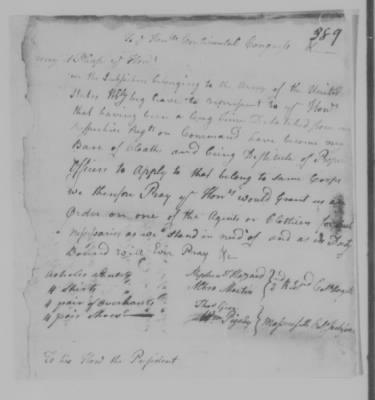 389
To ye Honble Continental Congress &c
may it Please ye Honrs
we the Subscribers belonging to the Army of the United
States Most beg leave to represent to ye Honrs
that having been a long time Detatched from our
respective Regts on Command have become very
Bare of Cloath and being Destitute of Proper
Officers to Apply to that belong to same Corps
we therefore Pray ye Honrs would Grant us an
Order on one of the Agents or Clothiers for such
nessessaries as we stand in need of and as in Duty
Bound will Ever Pray &c
4 Shirts
4 pair of overhauls
4 pair Shoes
Hazard
Thos Grey
To his Honr the President